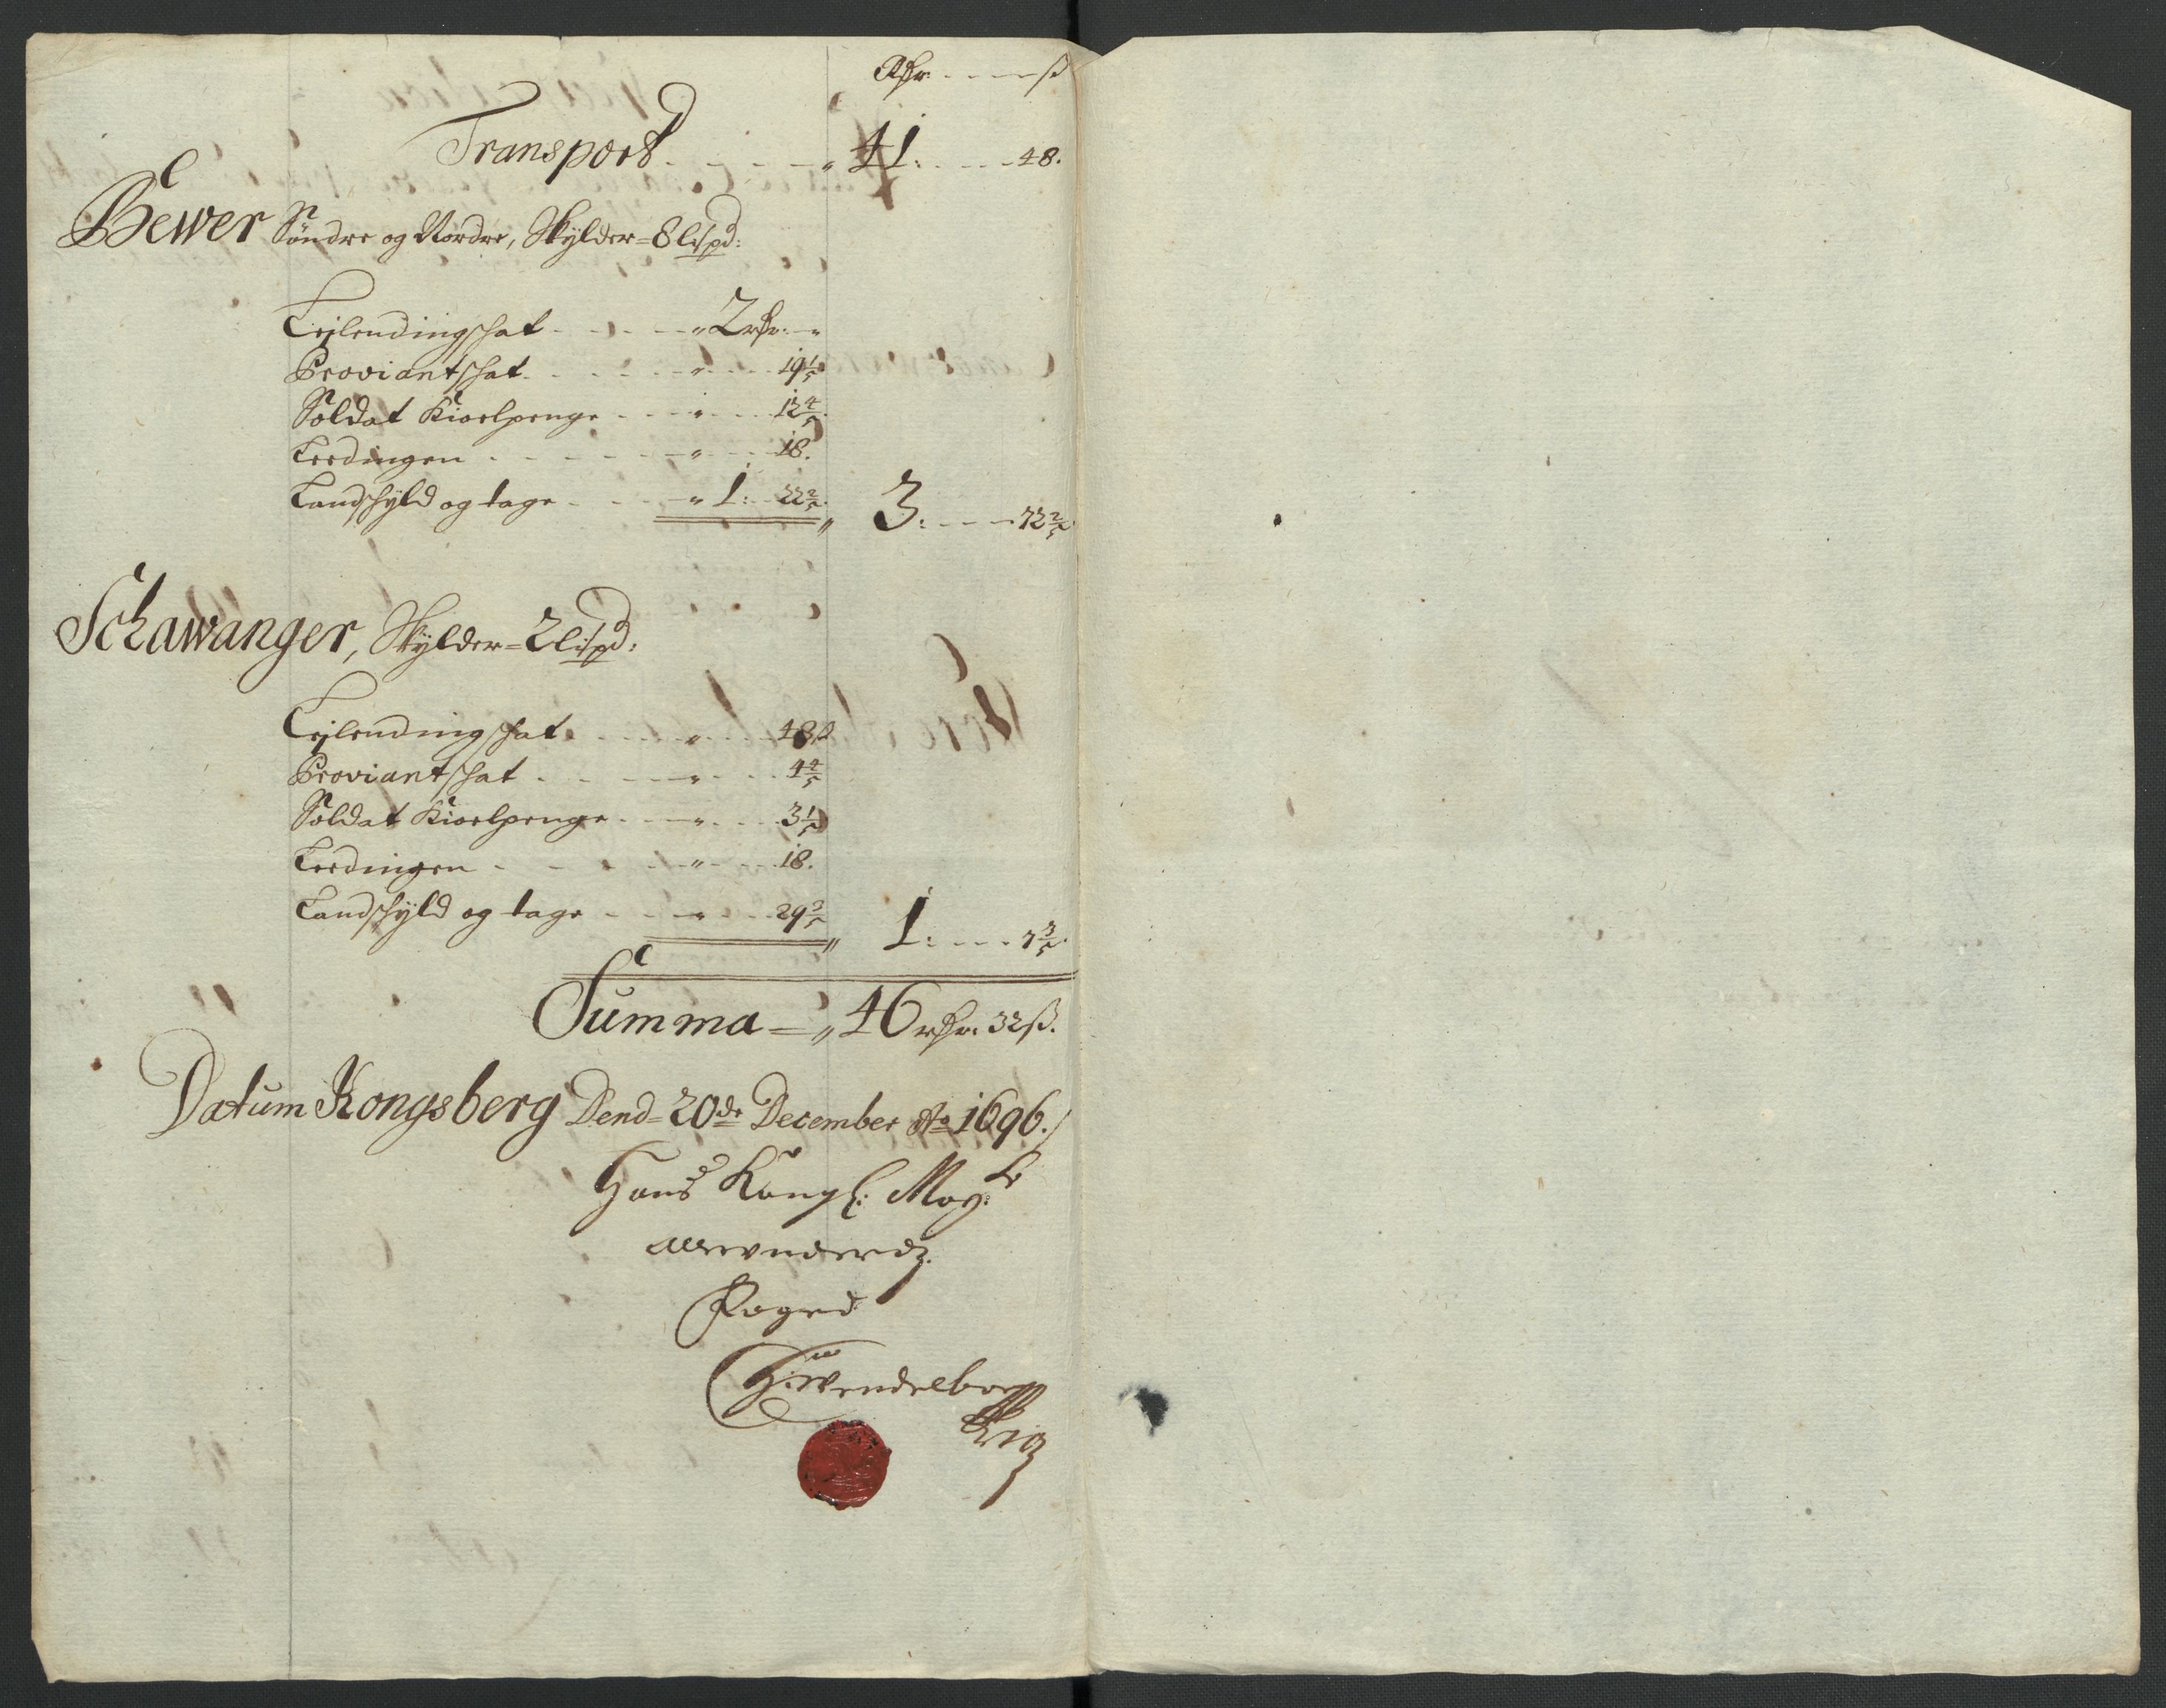 Rdr. - - - ß
Transport. - - - - „ 41: - - - 48.
Bewer Söndre og Nordre, Skylder = 8 lispd:
Leilendingschat - - - - „ 2 rdr: - „
Proviantschat. - - - - „ - - - 19 1/5
Soldat Kioelpenge - - - „ - - - 12 4/5.
Leedingen - - - - - „ - - - 18.
Landschyld og tage - - - „ 1: - 22 2/5.
„ 3: - - - 72 2/5
Schawanger, Skylder = 2 lispd:
Leilendingschat - - - - „ - - - 48 ß
Proviantschat - - - - „ - - - 4 4/5
Soldat Kioelpenge - - - „ - - - 3 1/5
Leedingen - - - - „ - - - 18.
Landschyld og tage - - - „ - - - 29 3/5
„ 1: - - - 7 3/5.
Summa = „ 46 rdr. 32 ß.
Datum Kongsberg Dend = 20de December Ao 1696./
Hans Kongl: May:ts
Foged
H: Wendelboe